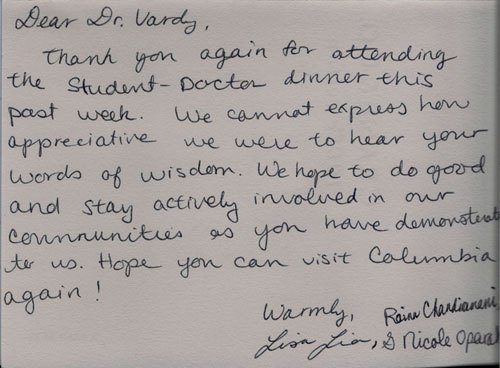 Dear Dr. Vardy,
Thank you again for attending
the Student-Doctor dinner this
past week. We cannot express how
appreciative we were to hear your
words of wisdom. We hope to do good
and stay actively involved in our
communities as you have
to us. Hope you can visit Columbia
again!
Warmly,
Lisa & Nicole